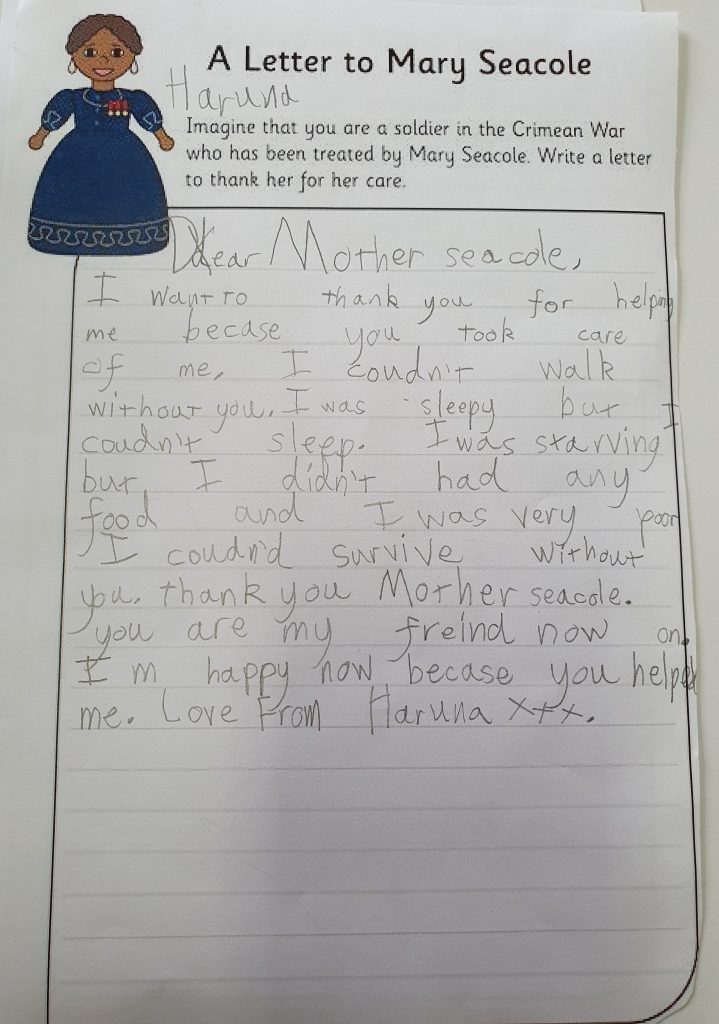 A Letter to Mary Seacole
Haruna
Imagine that you are a soldier in the Crimean War
who has been treated by Mary Seacole. Write a letter
to thank her for her care.
Dear Mother seacole,
I want to thank you for helping
me becase you took care
of me, I coudn't walk
without you. I was sleepy but I
coudn't sleep. I was starving
but I didn't had any
food and I was very poor
I coudn'd survive without
you. thank you Mother seacole.
you are my freind now on.
I m happy now becase you helped
me. Love From Haruna x++.